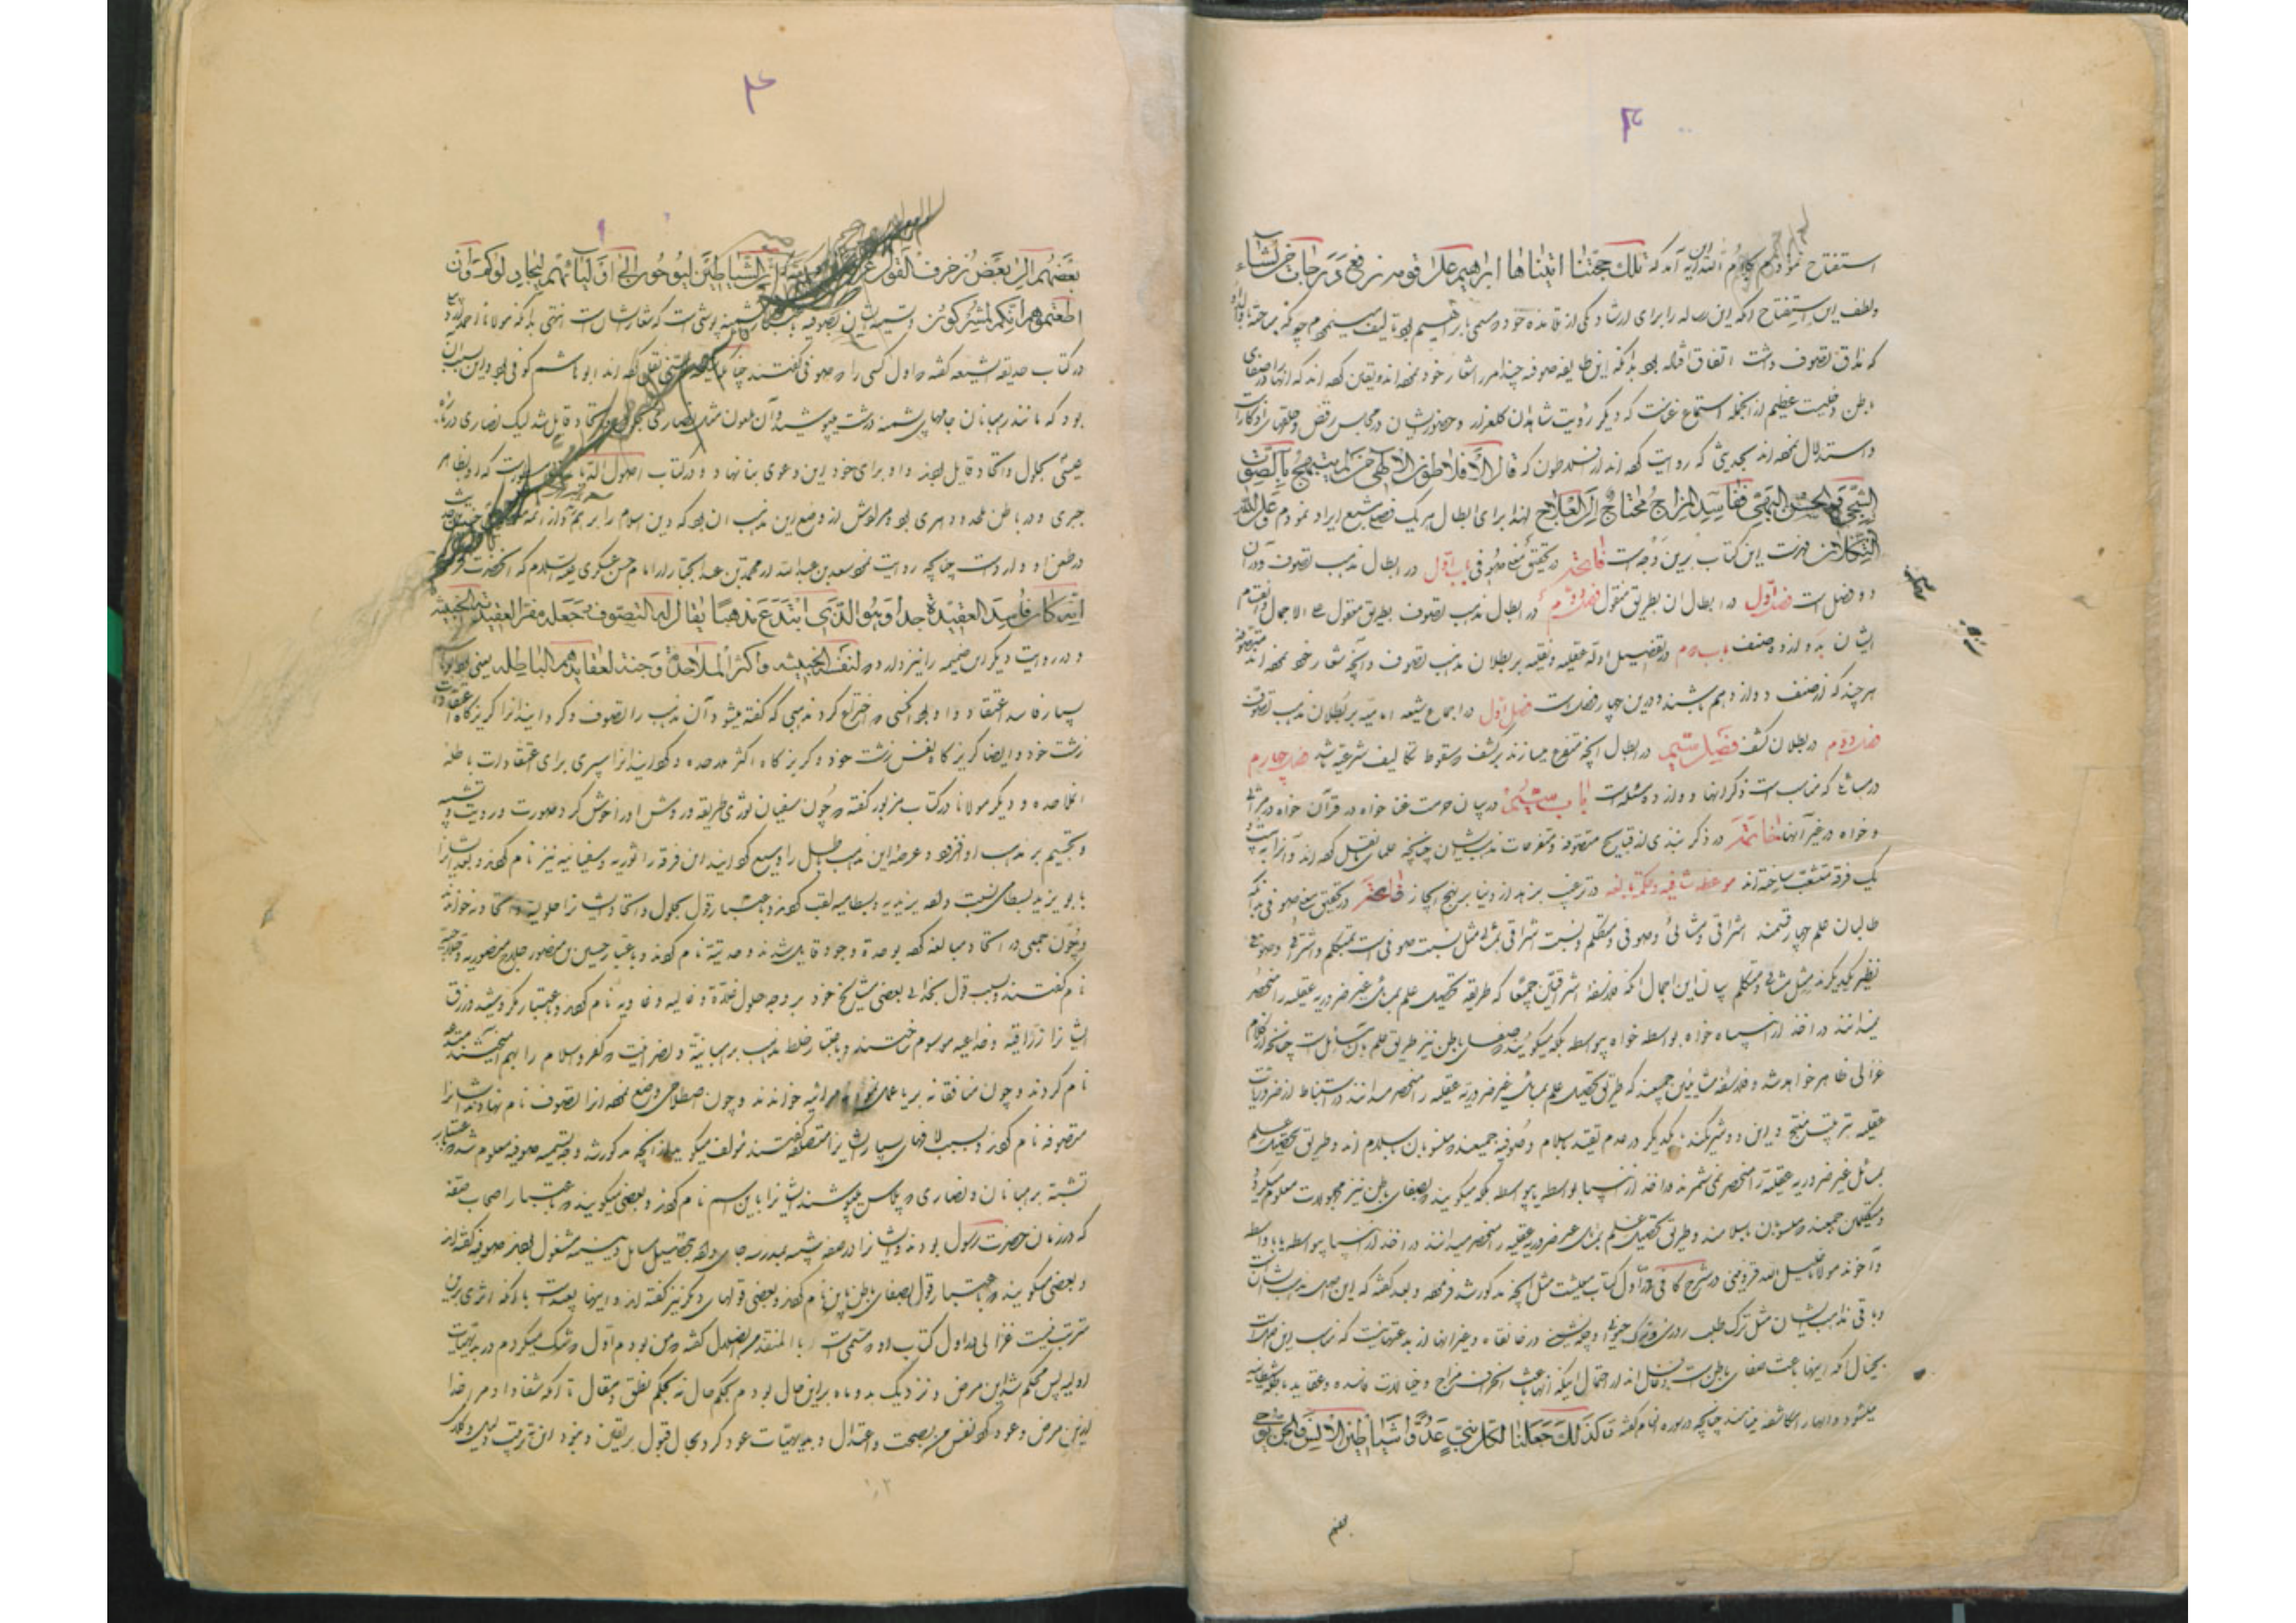 ۳
استفتاح نمودم کلام الله این آیه آمد که تلک حجتنا اتیناها ابراهیم علی قومه نرفع درجات من نشاء
ولطف این استفتاح آنکه این رساله را برای ارشاد یکی از تلامذه خود که مسمی بابراهیم بود تالیف مینمودم چونکه
که مذاق تصوف داشت اتفاق افتاده بود بدانکه این طایفه صوفیه چند امر را شعار خود نموده‌اند و یقین کرده‌اند که آنها را در صفای
باطن دخلیست عظیم از آنجمله استماع غناست که دیگر رؤیت شاهدان گلعذار و حضور ایشان در مجالس رقص و حلقهای
واستدلال نموده‌اند بحدیثی که روایت کرده‌اند از افلاطون که قال الافلاطون الالهی من لم یتهیج بالصوت
الشجی والحسن البهی ففاسد المزاج محتاج الی العلاج لهذا برای ابطال هر یک فصلی مشبع ایراد نمودم وعلی الله
التکلان فهرست این کتاب برین وجه است فاتحه در تحقیق معنی صوفی باب اول در ابطال مذهب تصوف ودر آن
دو فصل است فصل اول در ابطال آن بطریق منقول فصل دوم در ابطال مذهب تصوف بطریق منقول علی الاجمال وانقسام
ایشان بدوازده صنف باب دوم در تفصیل ادله عقلیه ونقلیه بر بطلان مذهب تصوف وآنچه شعار خود نموده‌اند متصوفه
هر چند که از صنف دوازدهم باشند ودرین چهار فصل است فصل اول در اجماع شیعه امامیه بر بطلان مذهب تصوف
فصل دوم در بطلان کشف فصل سیم در ابطال آنچه متفرع میسازند بر کشف و سقوط تکالیف شرعیه باشد فصل چهارم
در مسائلی که مناسب است ذکر آنها و دوازده مسئله است باب سیم در بیان حرمت غنا خواه در قرآن خواه در مراثی
وخواه در غیر آنها خاتمه در ذکر نبذی از قبایح متصوفه ومتفرعات مذهب ایشان چنانچه علمای نقل کرده‌اند وآنرا به بیست و
یک فرقه منشعب ساخته‌اند موعظه شافیه وحکمة بالغه در ترغیب بزهد از دنیا بر نهج ایجاز فاتحه در تحقیق معنی صوفی بدانکه
طالبان علم چهار قسمند اشراقی ومشائی وصوفی ومتکلم ونسبت اشراقی بمشائی مثل نسبت صوفی است بمتکلم واشراقی وصوفی
نظیر یکدیگرند مثل مشائی ومتکلم بیان این اجمال آنکه فلاسفه اشراقیین جمعند که طریقه تحصیل علم بمسائل غیر ضروریه عقلیه را منحصر
نمیدانند در اخذ از انبیاء خواه بواسطه خواه بیواسطه بلکه میگویند که صفای باطن نیز طریق علم بآن مسائل است چنانچه از کلام
غزالی ظاهر خواهد شد وفلاسفه مشائیین جمعند که طریق تحصیل علم بمسائل غیر ضروریه عقلیه را منحصر میدانند در استنباط از ضروریات
عقلیه بترتیب منتج واین دو شریکند با یکدیگر در عدم تقید باسلام وصوفیه جمعند که منسوبان باسلام‌اند وطریق تحصیل علم
بمسائل غیر ضروریه عقلیه را منحصر نمی‌شمرند در اخذ از انبیا بواسطه یا بیواسطه بلکه میگویند که بصفای باطن نیز مجهولات معلوم میگردد
ومتکلمین جمعند که منسوبان باسلامند وطریق تحصیل علم بمسائل غیر ضروریه عقلیه را منحصر میدانند در اخذ از انبیا بیواسطه یا بواسطه
وآخوند مولانا خلیل الله قزوینی در شرح کافی در اول کتاب عقل مثل آنچه مذکور شد فرموده وبعد گفته که این مذهب ایشان است
وباقی مذاهب ایشان مثل ترک طلب روزی وترک حیوانی وچله نشینی در خانقاه وغیر آنها از بدعتهاست که مناسب این
بخیال آنکه اینها باعث صفای باطن است وغافل‌اند از احتمال اینکه آنها باعث انحراف مزاج وخیالات فاسده وعقاید باطله شیطانیه
میشود وآنها را مکاشفه مینامند چنانچه در سوره انعام گفته وکذلک جعلنا لکل نبی عدوا شیاطین الانس والجن یوحی
بعضهم
۴
بعضهم الی بعض زخرف القول غرورا ان الشیاطین لیوحون الی اولیائهم لیجادلوکم وان
اطعتموهم انکم لمشرکون وتسمیه ایشان بصوفیه باعتبار پشمینه پوشی است که شعار ایشان است انتهی بدانکه مولانا احمد
در کتاب حدیقة الشیعه گفته که اول کسی را که صوفی گفتند چنانچه نقل کرده‌اند ابو هاشم کوفی بود واین بسبب آن
بود که مانند رهبانان جامهای پشمینه درشت میپوشید وآن ملعون مثل نصاری بحلول واتحاد قایل شد لیک نصاری درباره
عیسی بحلول واتحاد قایل بودند واو برای خود این دعوی بنا نهاد ودر کتاب اصول الدیانات مسطور است که او بظاهر
جبری ودر باطن ملحد ودهری بود ومرادش از وضع این مذهب آن بود که دین اسلام را بر هم زند واز ائمه
در طعن او وارد است چنانچه روایت نموده سعد بن عبدالله از محمد بن عبدالجبار از امام حسن عسکری علیه السلام که آنحضرت فرمود
انه کان فاسد العقیدة جدا وهو الذی ابتدع مذهبا یقال له التصوف وجعله مفرا لعقیدته الخبیثة
ودر روایت دیگر این ضمیمه را نیز دارد که لنفسه الخبیثه واکثر الملاحدة وجنة لعقایدهم الباطله یعنی
بسیار فاسد اعتقاد واو بود آنکسی که اختراع کرد مذهبی که گفته میشود آن مذهب را تصوف وگردانید آنرا گریزگاه اعتقادات
زشت خود وایضا گریزگاه نفس زشت خود وگریزگاه اکثر ملاحده وگردانید آنرا سپری برای اعتقادات باطله
ملاحده ودیگر مولانا در کتاب مزبور گفته که چون سفیان ثوری طریقه وروش او را خوش کرد وصورت ورؤیت وتشبیه
وتجسیم بر مذهب او افزود وعرصه این مذهب باطل را وسیع گردانید این فرقه را ثوریه وسفیانیه نیز نام کردند وبعد ایشان را
بابو یزید بسطامی نسبت داده یزیدیه وبسطامیه لقب کردند وباعتبار قول بحلول واتحاد ایشان را حلولیه واتحادیه خواندند
وچون جمعی در اتحاد مبالغه کرده بوحدة وجود قایل شدند وحدتیه نام کردند وباعتبار حسین بن منصور حلاج منصوریه وحلاجیه
نام گفتند وبسبب قول بخدائی بعضی مشایخ خود بر وجه حلول غلاة وغالیه وغاویه نام کردند وباعتبار مکر وشید وزرق
ایشان را زراقیه وخداعیه موسوم ساختند وباعتبار خلط مذهب برهبانیة ونصرانیت وکفر واسلام را بهم آمیختند
نام کردند وچون منافقانه بریا عمل نمودند مرائیه خواندند وچون اصطلاحی وضع نموده آنرا تصوف نام نهادند ایشان را
متصوفه نام کردند وبسبب لافهای بسیار ایشان را متصلفه گفتند مؤلف میگوید از آنچه مذکور شد وجه تسمیه صوفیه معلوم شد که باعتبار
تشبه برهبانان ونصاری که پلاس میپوشند ایشان را باین اسم نام کردند وبعضی میگویند که باعتبار اصحاب صفه
که در زمان حضرت رسول بودند وایشان را در صفه شبیه بمدرسه جای داده بتحصیل مسائل دینیه مشغول بودند صوفیه گفته‌اند
وبعضی میگویند که باعتبار قول بصفای باطن باین نام کردند وبعضی قولهای دیگر نیز گفته‌اند واینها بعید است با آنکه اثری برین
مترتب نیست غزالی در اول کتاب او که مسمی است بالمنقذ من الضلال گفته که من بودم اول که شک میکردم در بدیهیات
اولیه پس محکم شد این مرض ونزدیک بدو ماه برین حال بودم بحکم حال نه بحکم نطق ومقال تا آنکه شفا داد مرا خدا
ازین مرض وعود کرد نفس من بصحت واعتدال وبدیهیات عود کرد بحال قبول بر یقین ونبود این ترتیب دلیل وکلام